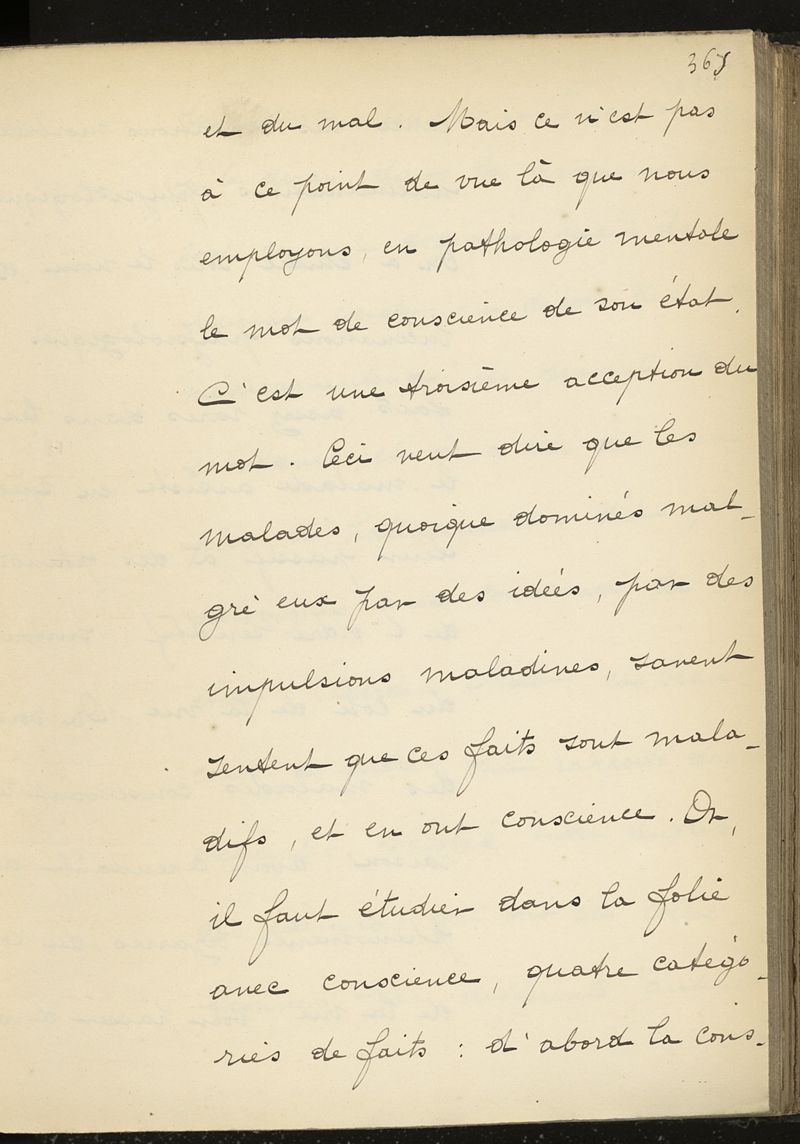 365
et du mal. Mais ce n'est pas
à ce point de vue là que nous
employons, en pathologie mentale
le mot de conscience de son état.
C'est une troisième acception du
mot. Ceci veut dire que les
malades, quoique dominés mal-
gré eux par des idées, par des
impulsions maladives, savent
sentent que ces faits sont mala-
difs, et en ont conscience. Or,
il faut étudier dans la folie
avec conscience, quatre catégo-
ries de faits : d'abord la cons-